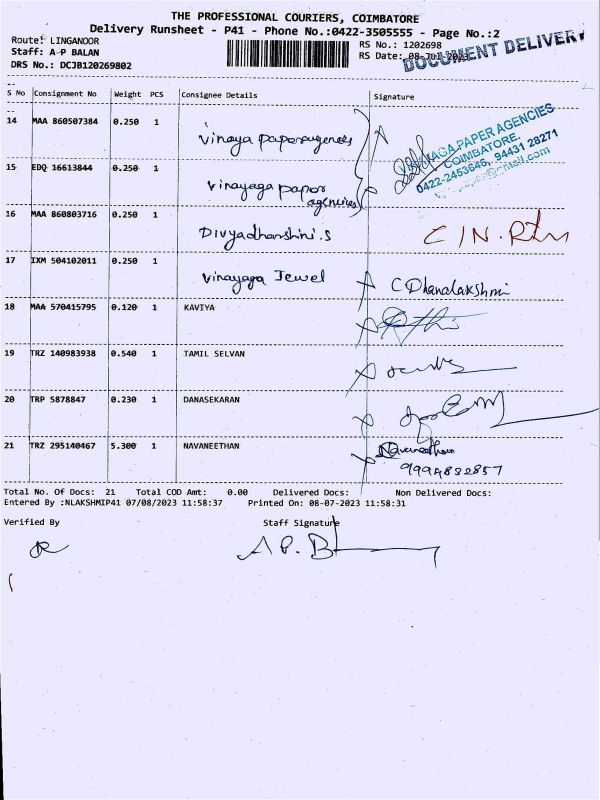 THE PROFESSIONAL COURIERS, COIMBATORE
Delivery Runsheet - P41 - Phone No.:0422-3505555 - Page No.:2
Route: LINGANOOR
RS No.: 1202698
Staff: A P BALAN
RS Date: 08-Jul-2023
DOCUMENT DELIVERY
DRS No.: DCJB120269802
S No Consignment No Weight PCS Consignee Details Signature
14 MAA 860507384 0.250 1 Vinaya paperagencies
AGA PAPER AGENCIES
COIMBATORE.
0422-2453646, 94431 28271
15 EDQ 16613844 0.250 1 Vinayaga papar
agencies
16 MAA 860803716 0.250 1 Divyadharshini.S C/N. Rtn
17 IXM 504102011 0.250 1 Vinayaga Jewel C Dhanalakshmi
18 MAA 570415795 0.120 1 KAVIYA
19 TRZ 140983938 0.540 1 TAMIL SELVAN
20 TRP 5878847 0.230 1 DANASEKARAN
21 TRZ 295140467 5.300 1 NAVANEETHAN Navaneethan
9994832857
Total No. Of Docs: 21 Total COD Amt: 0.00 Delivered Docs: Non Delivered Docs:
Entered By :NLAKSHMIP41 07/08/2023 11:58:37 Printed On: 08-07-2023 11:58:31
Verified By Staff Signature
A P. B